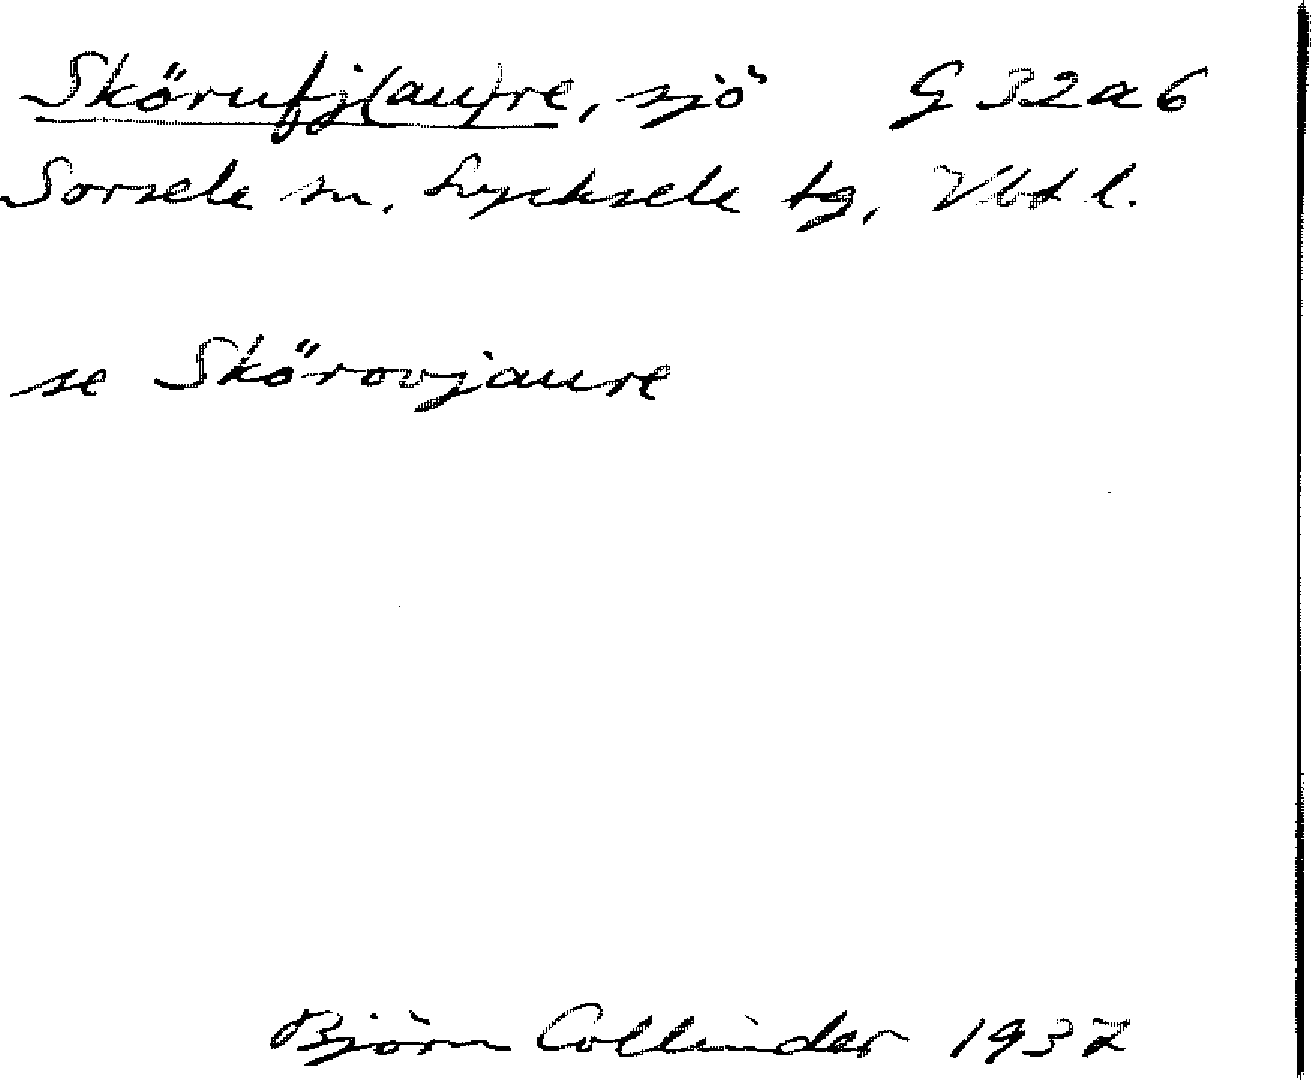 Skörufj(au)re, sjö G 32a6
Sorsele sn. Lycksele tg, Vbt l.
se Skörovjaure
Björn Collinder 1937